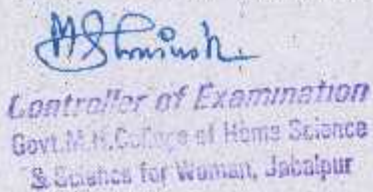 Controller of Examination
Govt. M.H. College of Home Science
& Science for Woman, Jabalpur